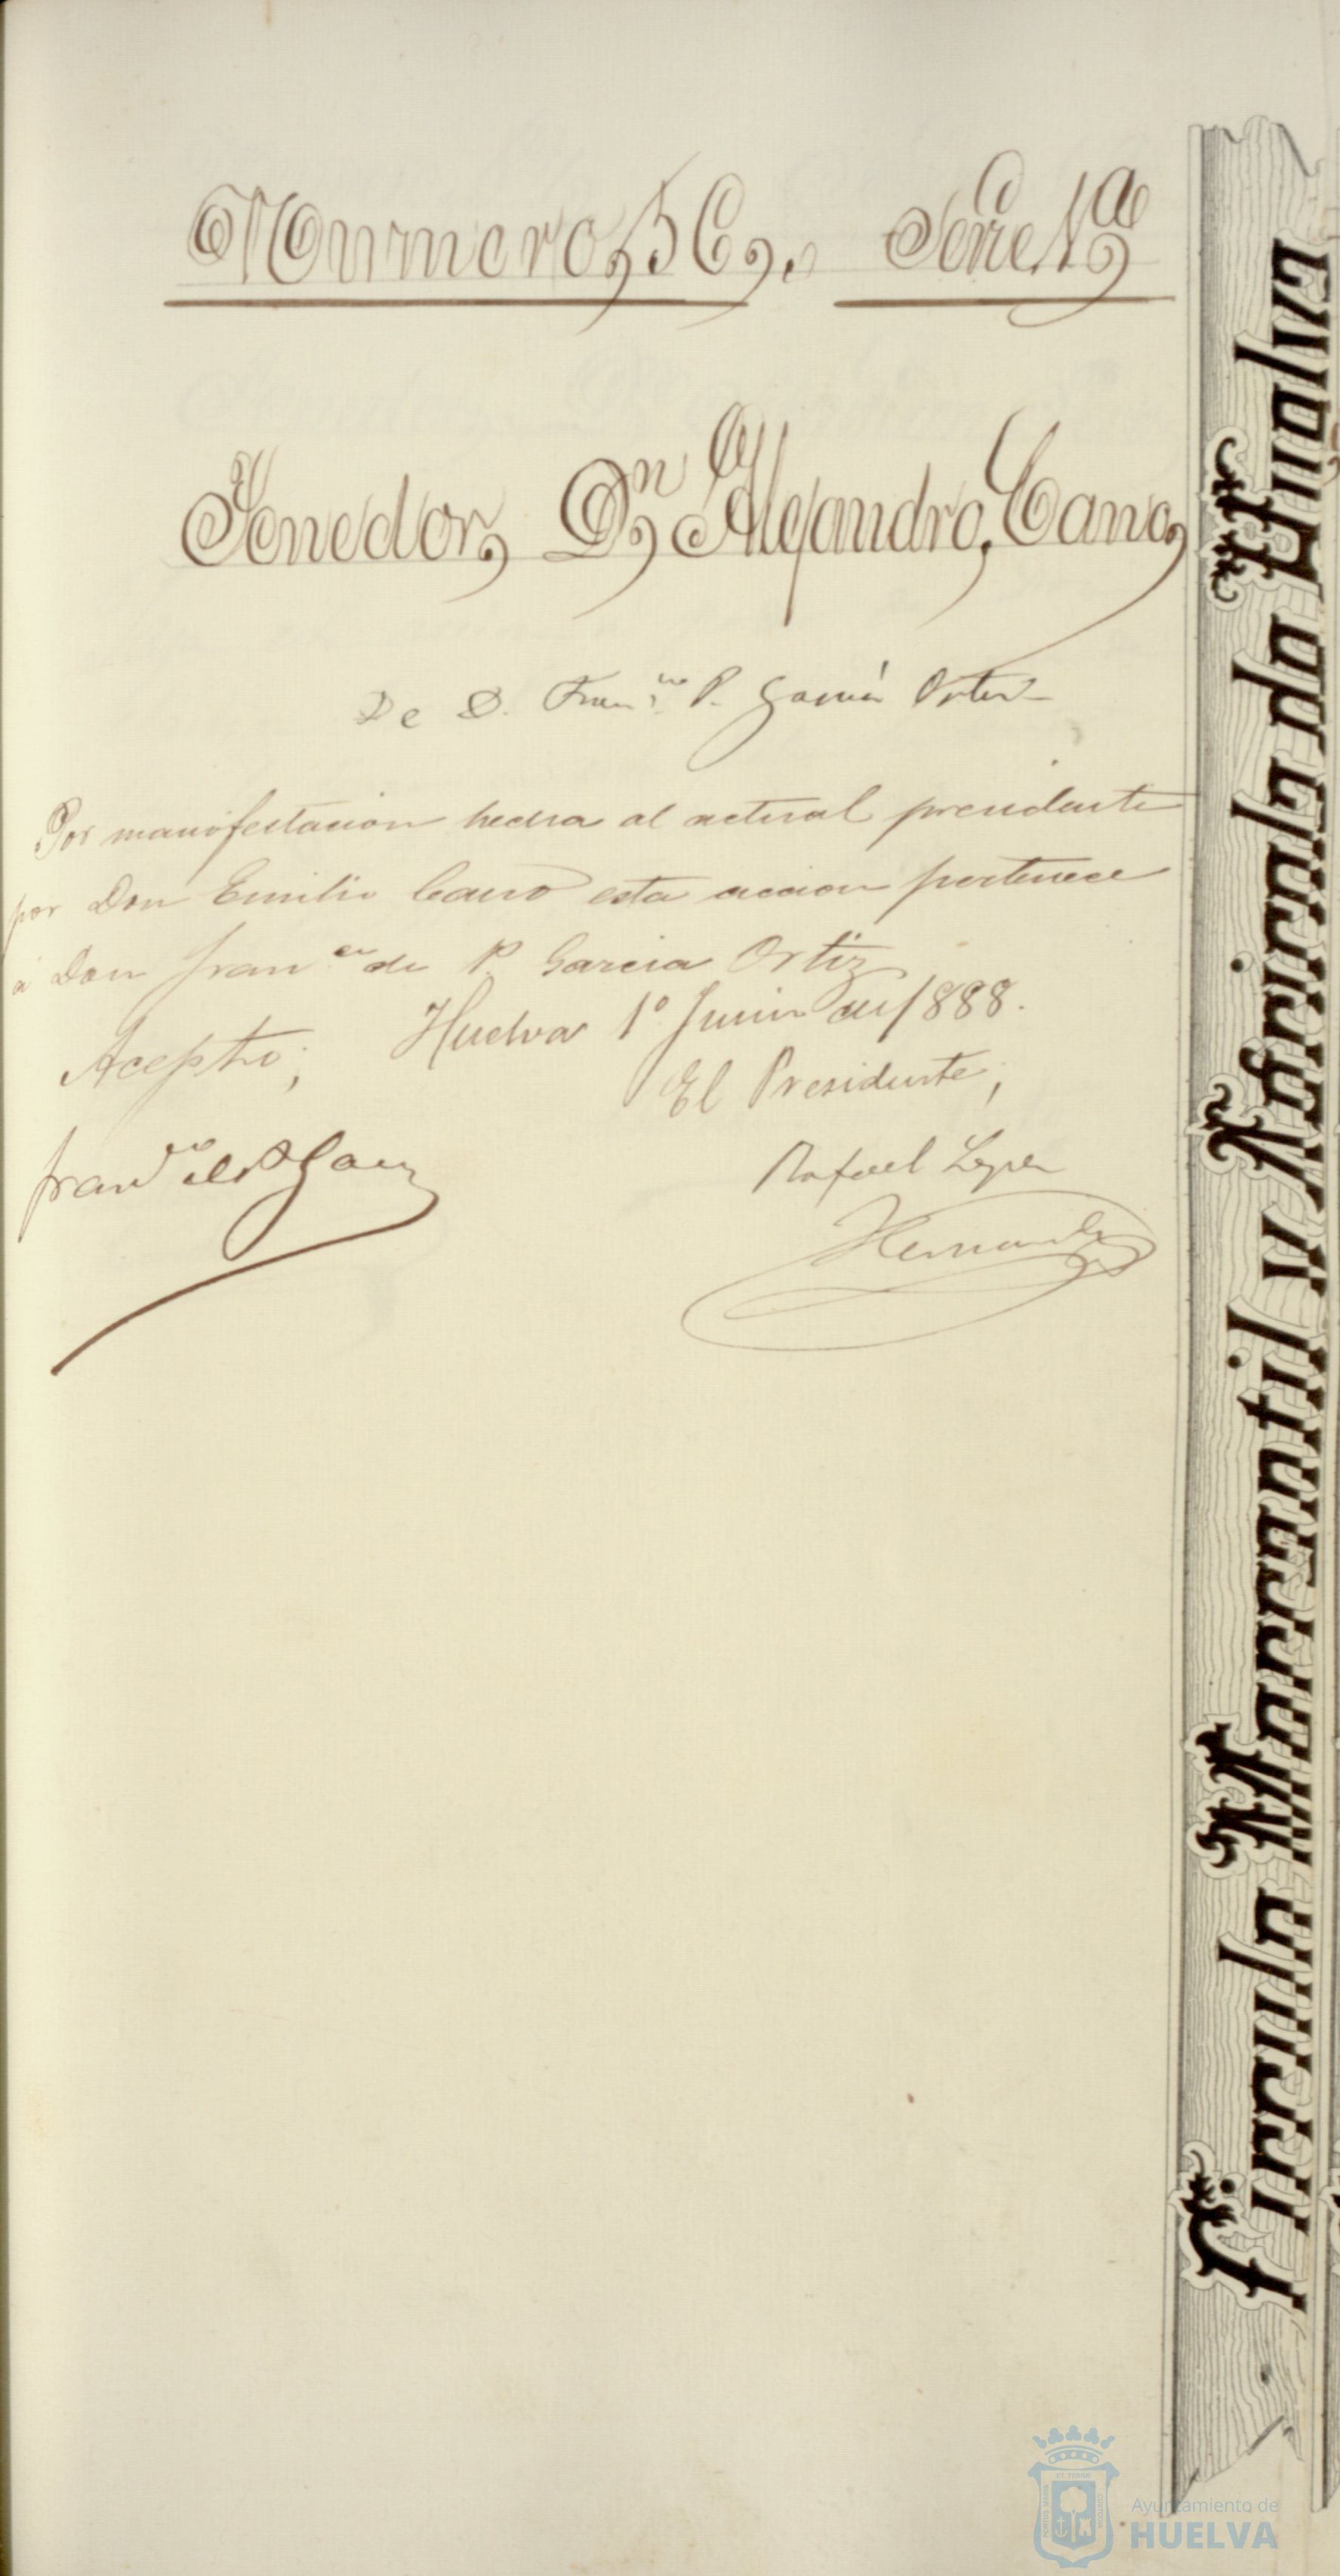 Numero, 56,. Serie 1ª
Tenedor, Dn Alejandro, Cano,
De D. Franco P. García Ortiz
Por manifestacion hecha al actual presidente
por Don Emilio Cano esta accion pertenece
á Don Franco de P. Garcia Ortiz
Huelva 1º Junio de 1888.
Acepto;
El Presidente,
Franco de P Garcia
Rafael Lopez
Hernandez
Circulo Mercantil y Agricola de Huelva
Ayuntamiento de
HUELVA